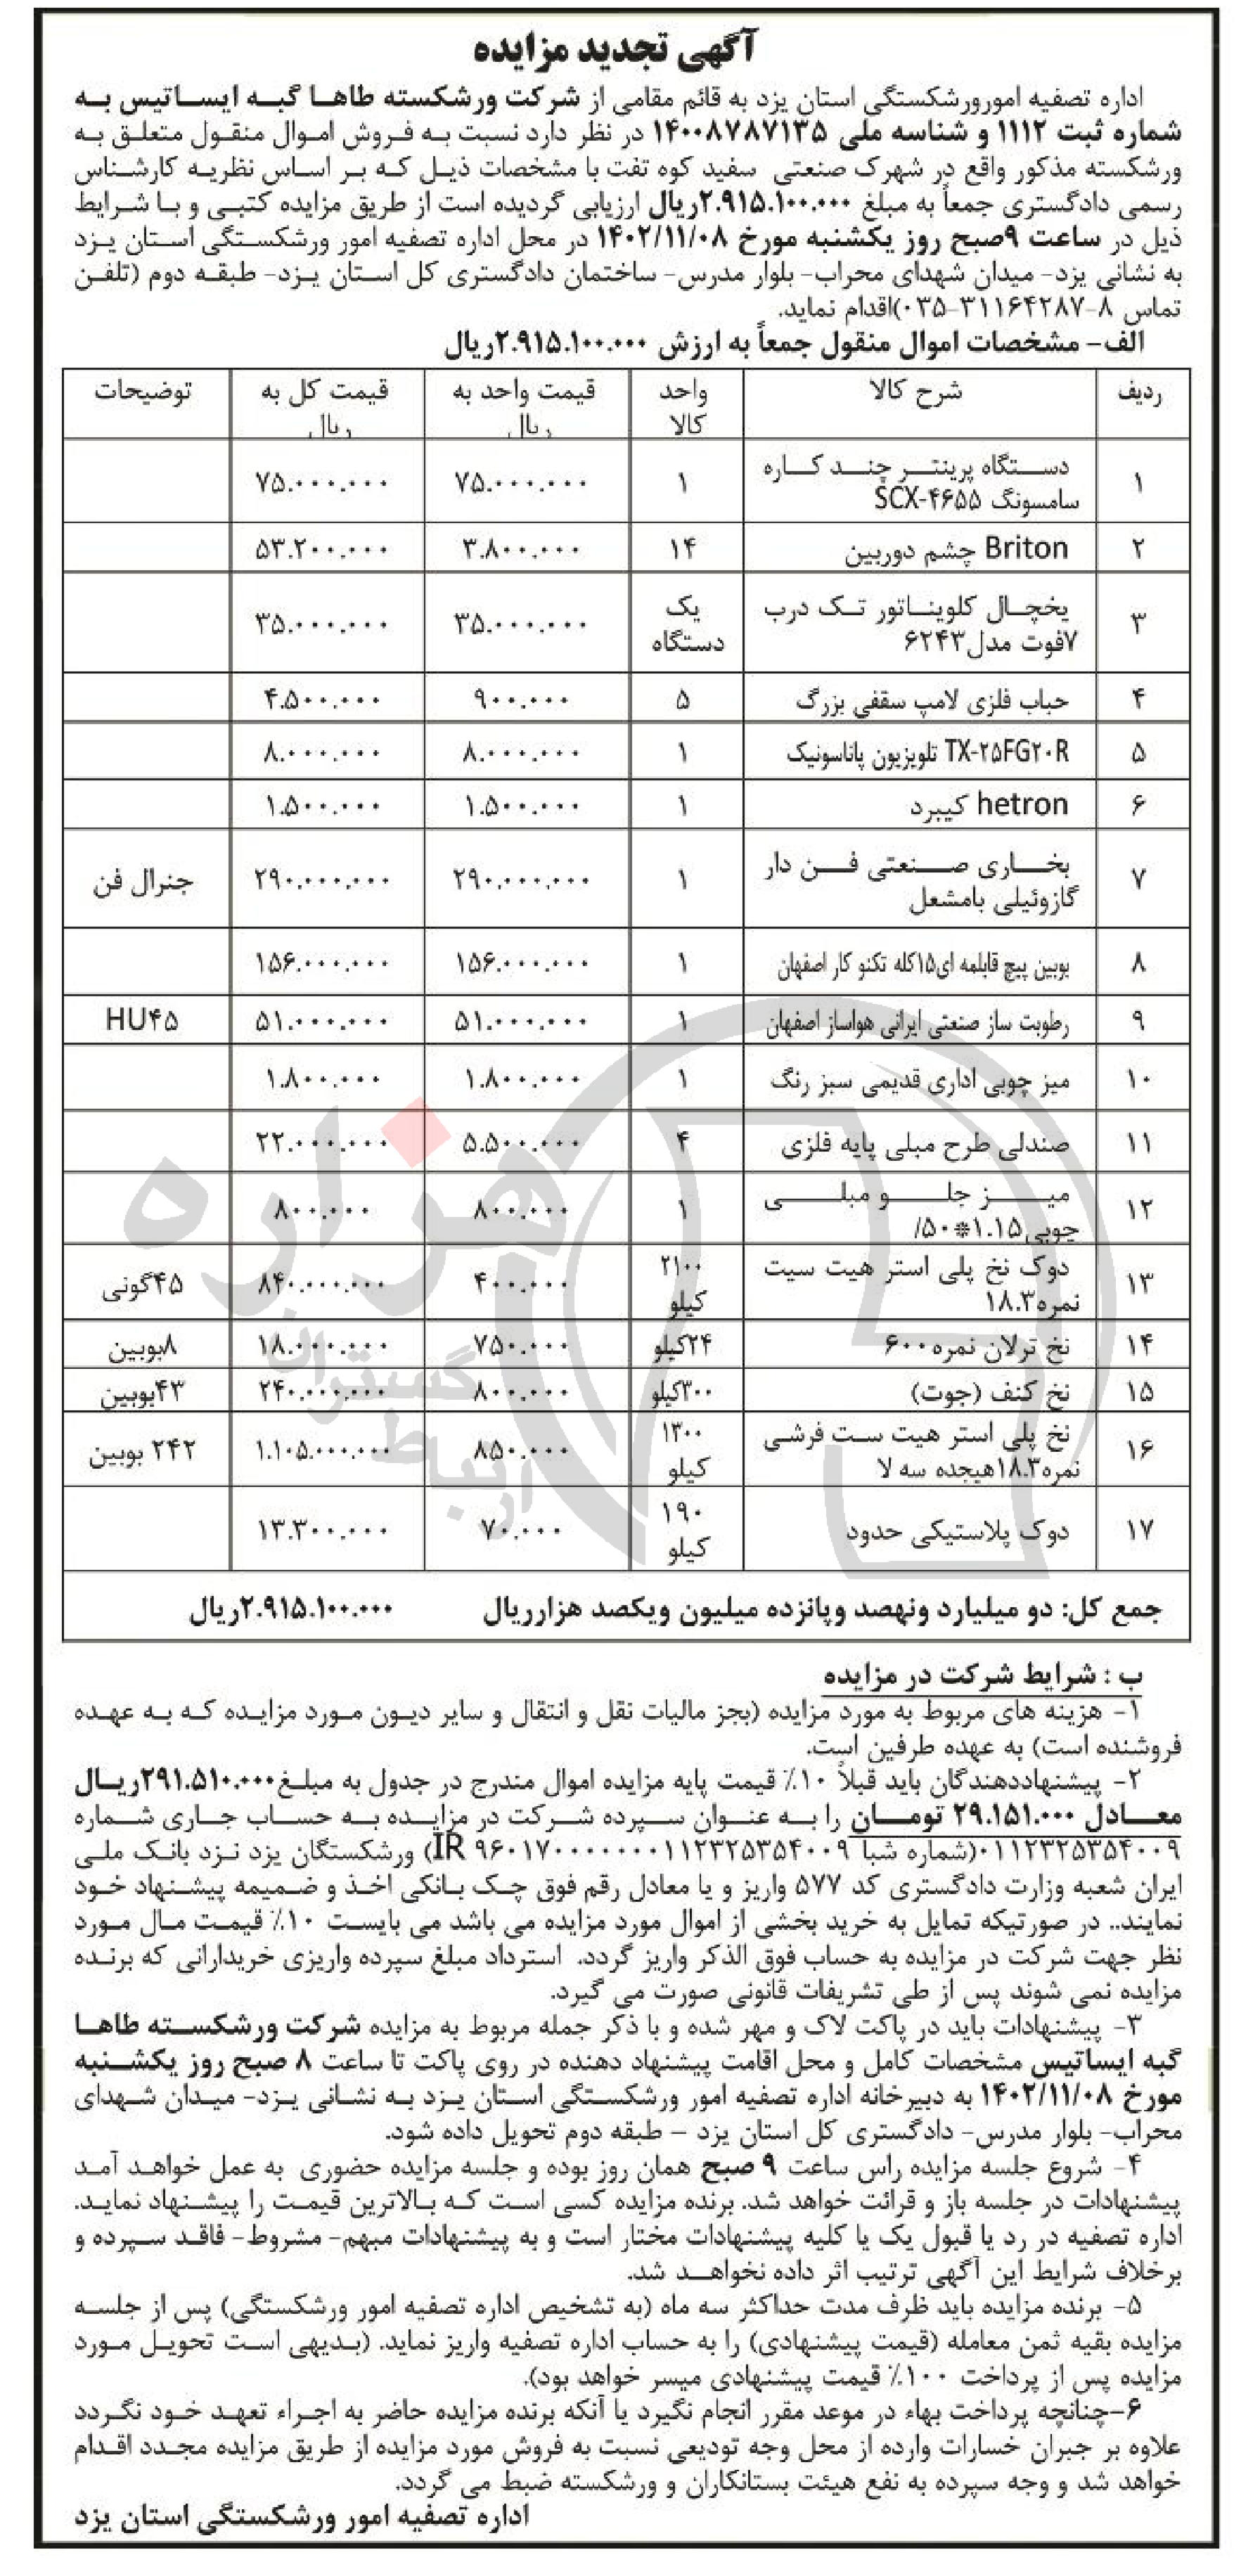 آگهی تجدید مزایده
اداره تصفیه امورورشکستگی استان یزد به قائم مقامی از شرکت ورشکسته طاها گبه ایساتیس به
شماره ثبت ۱۱۱۲ و شناسه ملی ۱۴۰۰۸۷۸۷۱۳۵ در نظر دارد نسبت به فروش اموال منقول متعلق به
ورشکسته مذکور واقع در شهرک صنعتی سفید کوه تفت با مشخصات ذیل که بر اساس نظریه کارشناس
رسمی دادگستری جمعاً به مبلغ ۲.۹۱۵.۱۰۰.۰۰۰ریال ارزیابی گردیده است از طریق مزایده کتبی و با شرایط
ذیل در ساعت ۹صبح روز یکشنبه مورخ ۱۴۰۲/۱۱/۰۸ در محل اداره تصفیه امور ورشکستگی استان یزد
به نشانی یزد- میدان شهدای محراب- بلوار مدرس- ساختمان دادگستری کل استان یزد- طبقه دوم (تلفن
تماس ۸-۳۱۱۶۴۲۸۷-۰۳۵)اقدام نماید.
الف- مشخصات اموال منقول جمعاً به ارزش ۲.۹۱۵.۱۰۰.۰۰۰ریال
ردیف شرح کالا واحد کالا قیمت واحد به ریال قیمت کل به ریال توضیحات
۱ دستگاه پرینتر چند کاره سامسونگ SCX-۴۶۵۵ ۱ ۷۵.۰۰۰.۰۰۰ ۷۵.۰۰۰.۰۰۰
۲ Briton چشم دوربین ۱۴ ۳.۸۰۰.۰۰۰ ۵۳.۲۰۰.۰۰۰
۳ یخچال کلویناتور تک درب ۷فوت مدل۶۲۴۳ یک دستگاه ۳۵.۰۰۰.۰۰۰ ۳۵.۰۰۰.۰۰۰
۴ حباب فلزی لامپ سقفی بزرگ ۵ ۹۰۰.۰۰۰ ۴.۵۰۰.۰۰۰
۵ TX-۲۵FG۲۰R تلویزیون پاناسونیک ۱ ۸.۰۰۰.۰۰۰ ۸.۰۰۰.۰۰۰
۶ hetron کیبرد ۱ ۱.۵۰۰.۰۰۰ ۱.۵۰۰.۰۰۰
۷ بخاری صنعتی فن دار گازوئیلی بامشعل ۱ ۲۹۰.۰۰۰.۰۰۰ ۲۹۰.۰۰۰.۰۰۰ جنرال فن
۸ بوبین پیچ قابلمه ای۱۵کله تکنو کار اصفهان ۱ ۱۵۶.۰۰۰.۰۰۰ ۱۵۶.۰۰۰.۰۰۰
۹ رطوبت ساز صنعتی ایرانی هواساز اصفهان ۱ ۵۱.۰۰۰.۰۰۰ ۵۱.۰۰۰.۰۰۰ HU۴۵
۱۰ میز چوبی اداری قدیمی سبز رنگ ۱ ۱.۸۰۰.۰۰۰ ۱.۸۰۰.۰۰۰
۱۱ صندلی طرح مبلی پایه فلزی ۴ ۵.۵۰۰.۰۰۰ ۲۲.۰۰۰.۰۰۰
۱۲ میز جلو مبلی چوبی۱.۱۵*۵۰/ ۱ ۸۰۰.۰۰۰ ۸۰۰.۰۰۰
۱۳ دوک نخ پلی استر هیت سیت نمره۱۸.۳ ۲۱۰۰ کیلو ۴۰۰.۰۰۰ ۸۴۰.۰۰۰.۰۰۰ ۴۵گونی
۱۴ نخ ترلان نمره۶۰۰ ۲۴کیلو ۷۵۰.۰۰۰ ۱۸.۰۰۰.۰۰۰ ۸بوبین
۱۵ نخ کنف (جوت) ۳۰۰کیلو ۸۰۰.۰۰۰ ۲۴۰.۰۰۰.۰۰۰ ۴۳بوبین
۱۶ نخ پلی استر هیت ست فرشی نمره۱۸.۳هیجده سه لا ۱۳۰۰ کیلو ۸۵۰.۰۰۰ ۱.۱۰۵.۰۰۰.۰۰۰ ۲۴۲ بوبین
۱۷ دوک پلاستیکی حدود ۱۹۰ کیلو ۷۰.۰۰۰ ۱۳.۳۰۰.۰۰۰
جمع کل: دو میلیارد ونهصد وپانزده میلیون ویکصد هزارریال ۲.۹۱۵.۱۰۰.۰۰۰ریال
ب : شرایط شرکت در مزایده
۱- هزینه های مربوط به مورد مزایده (بجز مالیات نقل و انتقال و سایر دیون مورد مزایده که به عهده
فروشنده است) به عهده طرفین است.
۲- پیشنهاددهندگان باید قبلاً ۱۰٪ قیمت پایه مزایده اموال مندرج در جدول به مبلغ۲۹۱.۵۱۰.۰۰۰ریال
معادل ۲۹.۱۵۱.۰۰۰ تومان را به عنوان سپرده شرکت در مزایده به حساب جاری شماره
۰۱۱۲۳۲۵۳۵۴۰۰۹(شماره شبا IR ۹۶۰۱۷۰۰۰۰۰۰۰۰۱۱۲۳۲۵۳۵۴۰۰۹) ورشکستگان یزد نزد بانک ملی
ایران شعبه وزارت دادگستری کد ۵۷۷ واریز و یا معادل رقم فوق چک بانکی اخذ و ضمیمه پیشنهاد خود
نمایند.. در صورتیکه تمایل به خرید بخشی از اموال مورد مزایده می باشد می بایست ۱۰٪ قیمت مال مورد
نظر جهت شرکت در مزایده به حساب فوق الذکر واریز گردد. استرداد مبلغ سپرده واریزی خریدارانی که برنده
مزایده نمی شوند پس از طی تشریفات قانونی صورت می گیرد.
۳- پیشنهادات باید در پاکت لاک و مهر شده و با ذکر جمله مربوط به مزایده شرکت ورشکسته طاها
گبه ایساتیس مشخصات کامل و محل اقامت پیشنهاد دهنده در روی پاکت تا ساعت ۸ صبح روز یکشنبه
مورخ ۱۴۰۲/۱۱/۰۸ به دبیرخانه اداره تصفیه امور ورشکستگی استان یزد به نشانی یزد- میدان شهدای
محراب- بلوار مدرس- دادگستری کل استان یزد – طبقه دوم تحویل داده شود.
۴- شروع جلسه مزایده راس ساعت ۹ صبح همان روز بوده و جلسه مزایده حضوری به عمل خواهد آمد
پیشنهادات در جلسه باز و قرائت خواهد شد. برنده مزایده کسی است که بالاترین قیمت را پیشنهاد نماید.
اداره تصفیه در رد یا قبول یک یا کلیه پیشنهادات مختار است و به پیشنهادات مبهم- مشروط- فاقد سپرده و
برخلاف شرایط این آگهی ترتیب اثر داده نخواهد شد.
۵- برنده مزایده باید ظرف مدت حداکثر سه ماه (به تشخیص اداره تصفیه امور ورشکستگی) پس از جلسه
مزایده بقیه ثمن معامله (قیمت پیشنهادی) را به حساب اداره تصفیه واریز نماید. (بدیهی است تحویل مورد
مزایده پس از پرداخت ۱۰۰٪ قیمت پیشنهادی میسر خواهد بود).
۶-چنانچه پرداخت بهاء در موعد مقرر انجام نگیرد یا آنکه برنده مزایده حاضر به اجراء تعهد خود نگردد
علاوه بر جبران خسارات وارده از محل وجه تودیعی نسبت به فروش مورد مزایده از طریق مزایده مجدد اقدام
خواهد شد و وجه سپرده به نفع هیئت بستانکاران و ورشکسته ضبط می گردد.
اداره تصفیه امور ورشکستگی استان یزد
هزاره
ارتباط گستران